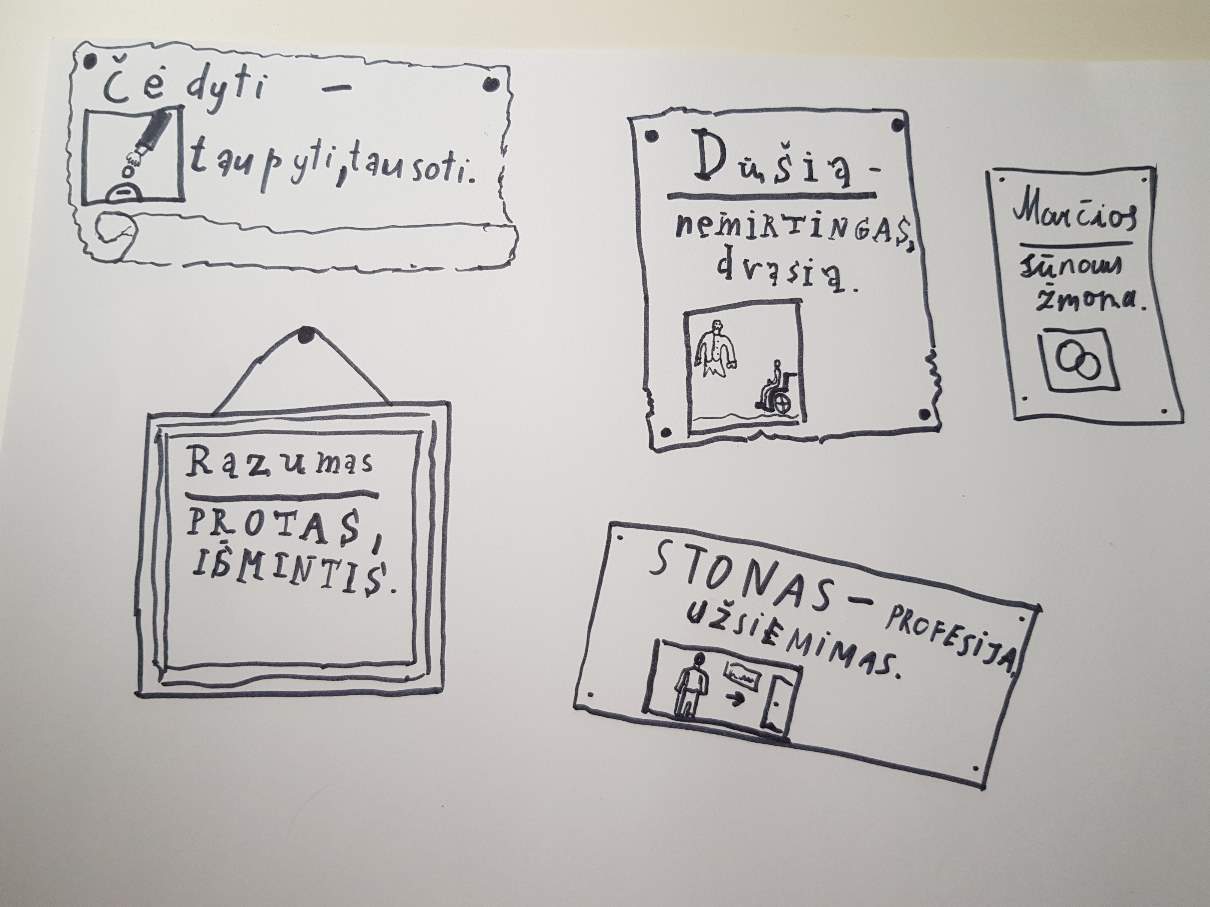 Čėdyti –
taupyti, tausoti.
Dūšią -
nemiRTiNGAS,
dvasią.
Marčios
sūnaus
žmona.
Razumas
PROTAS,
IŠMINTIS.
STONAS – PROFESIJA,
UŽSIEMIMAS.